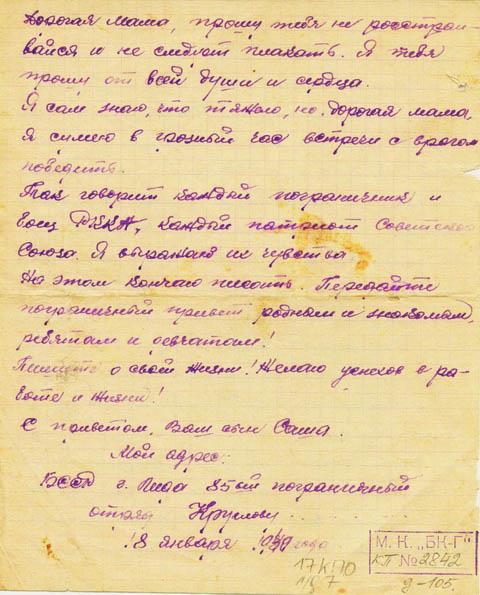 Дорогая мама, прошу тебя не расстраи-
вайся и не следует плакать. Я тебя
прошу от всей души и сердца.
Я сам знаю, что тяжело, но дорогая мама,
я сумею в грозный час встречи с врагом
победить.
Так говорит каждый пограничник и
боец РККА, каждый патриот Советского
Союза. Я выражаю их чувства
На этом кончаю писать. Передайте
пограничный привет родным и знакомым,
ребятам и девчатам!
Пишите о своей жизни! Желаю успехов в ра-
боте и жизни!
С приветом, Ваш сын Саша.
Мой адрес:
БССР г. Лида 85ый пограничный
отряд Круглову
18 января года
М. К. „БК-Г"
КП № 2842
17 КПО
д-105.